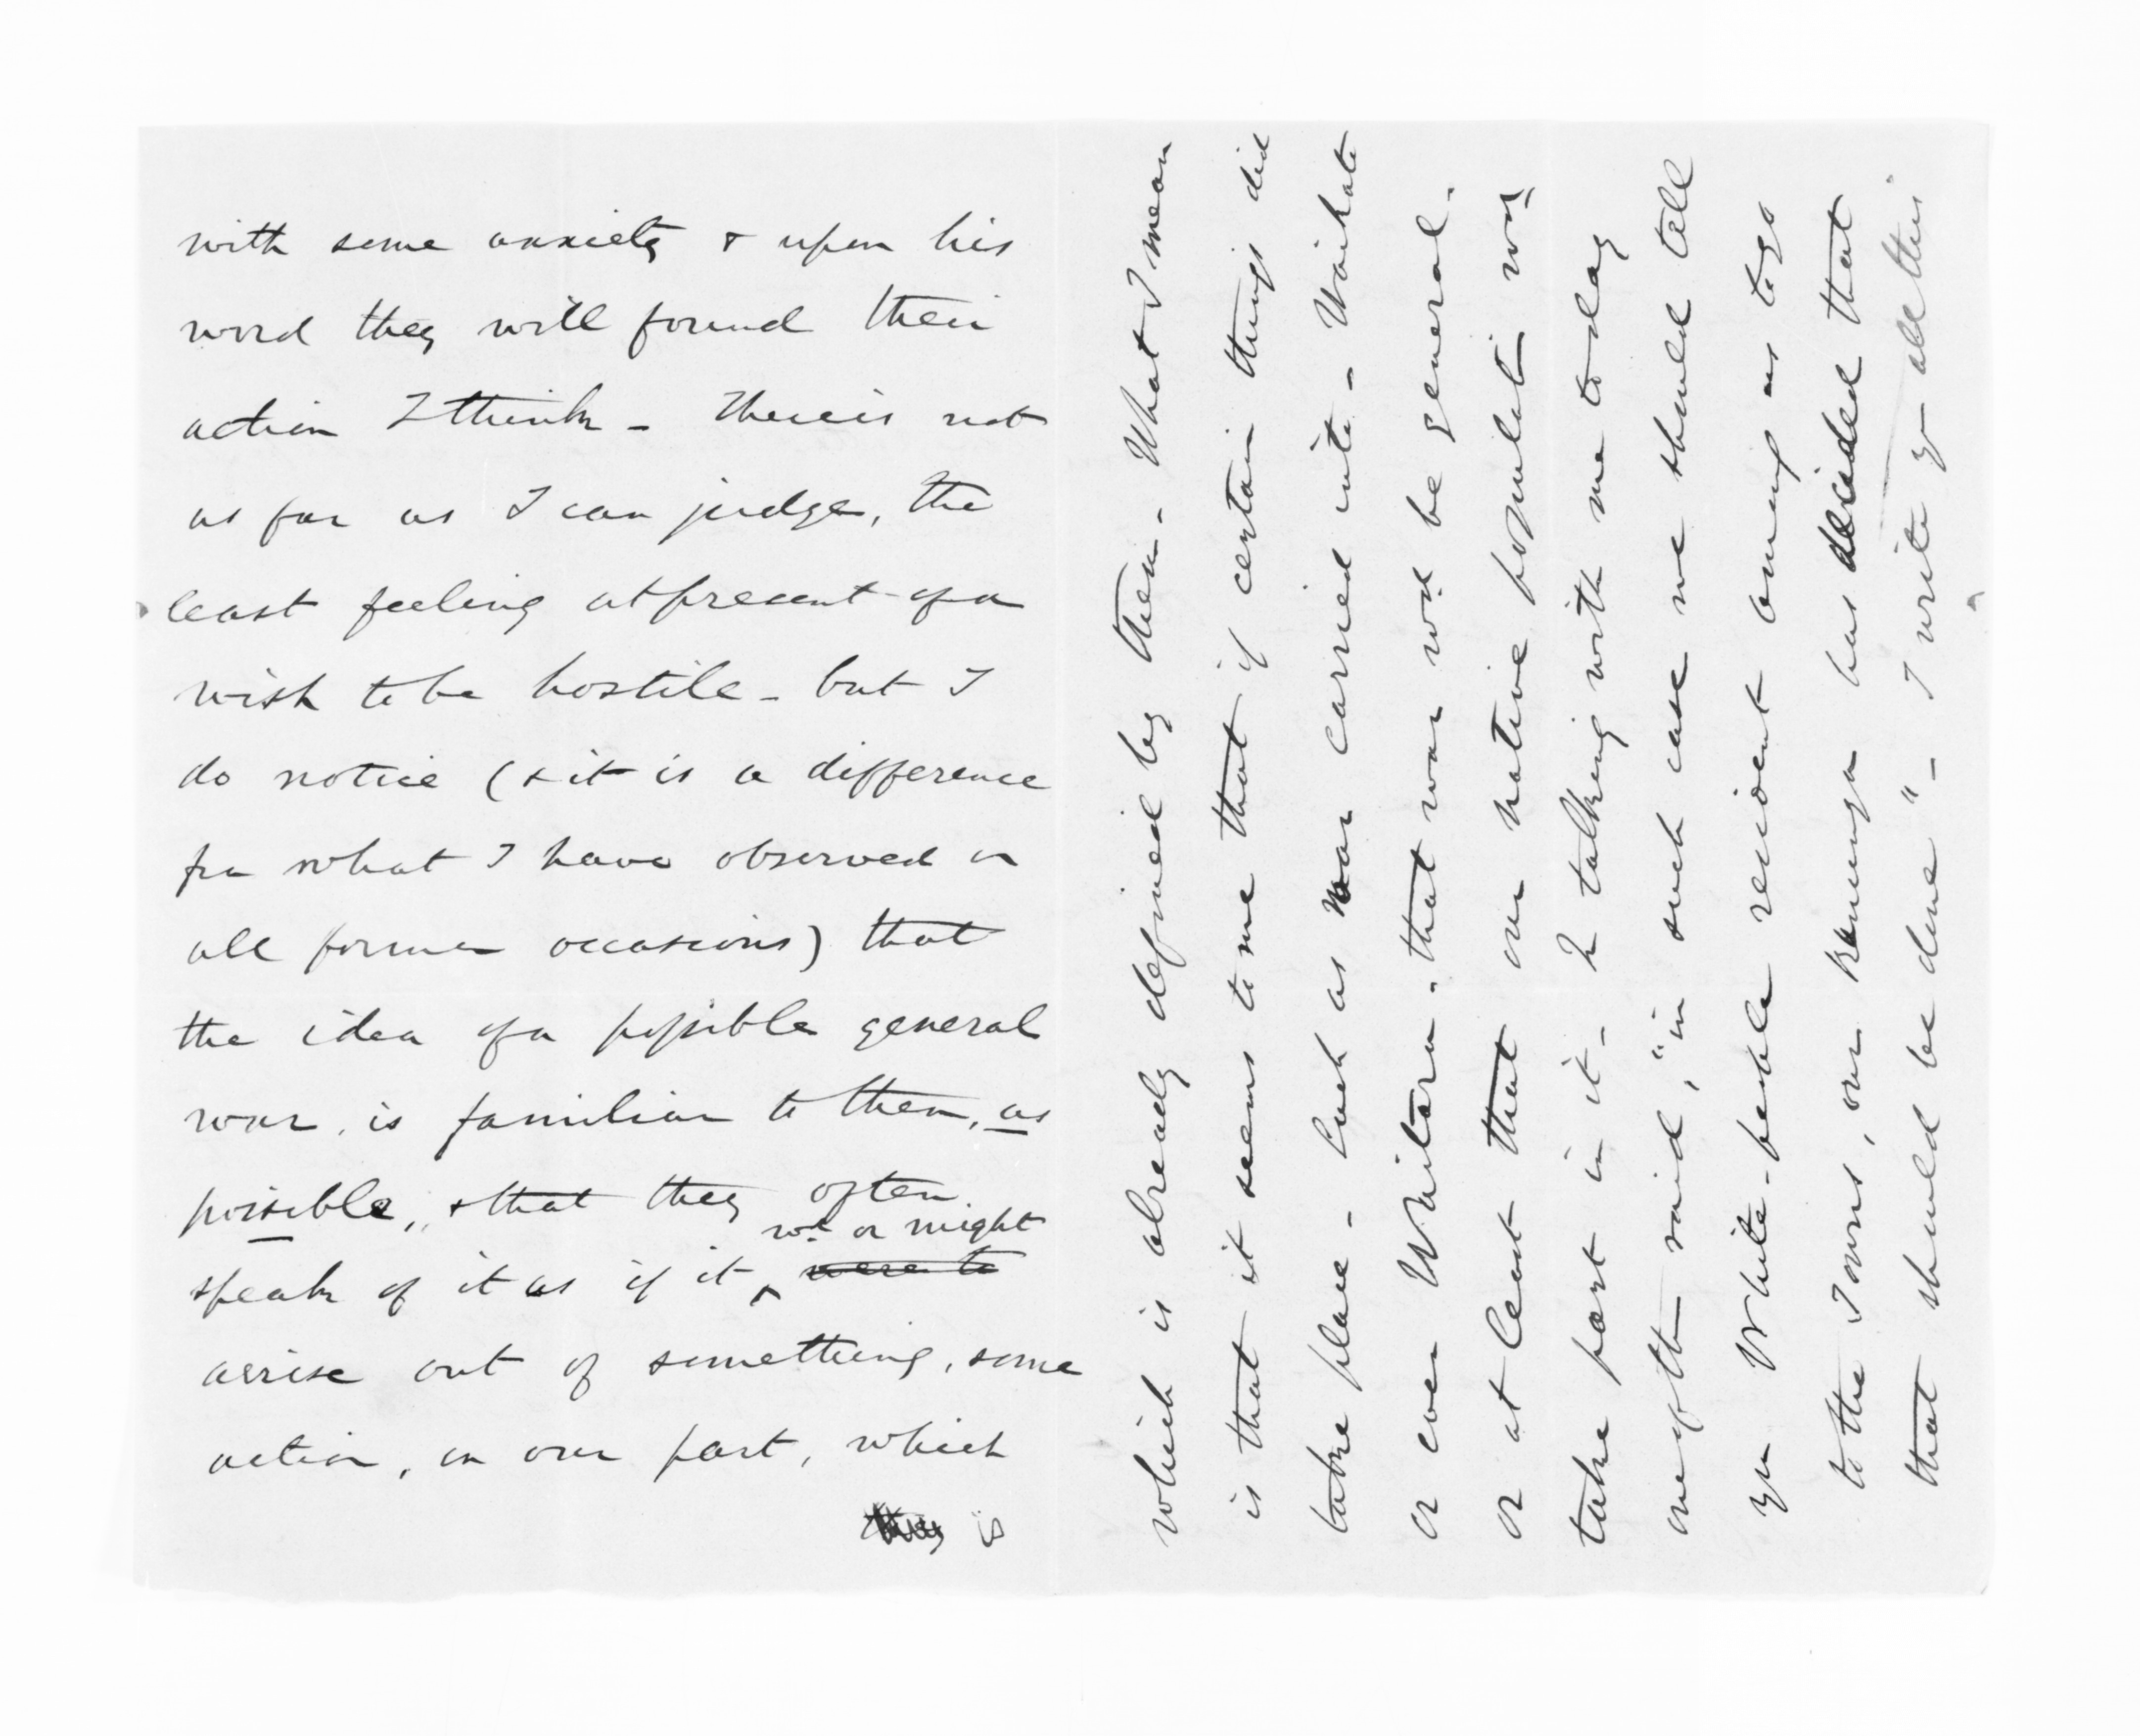 with some anxiety & upon his
word they will found their
action I think - There is not
as far as I can judge, the
least feeling at present of a
wish to be hostile - but I
do notice (& it is a difference
fm what I have observed on
all former occasions) that
the idea of a possible general
war, is familiar to them, as
possible, & that they often
wd or might
speak of it as if it were to
arrise out of something, some
action, on our part, which
they is
which is already defined by them. What I mean
is that it seems to me that if certain things did
take place - such as war carried into - Waikato
or even Waitara. that war wd be general.
or at least that our native populatn wd
take part in it - In talking with me today
one of thm said, "in such case we should tell
you White-people resident among us to go
to the Towns, our runanga has decided that
that should be done" - I write you all this